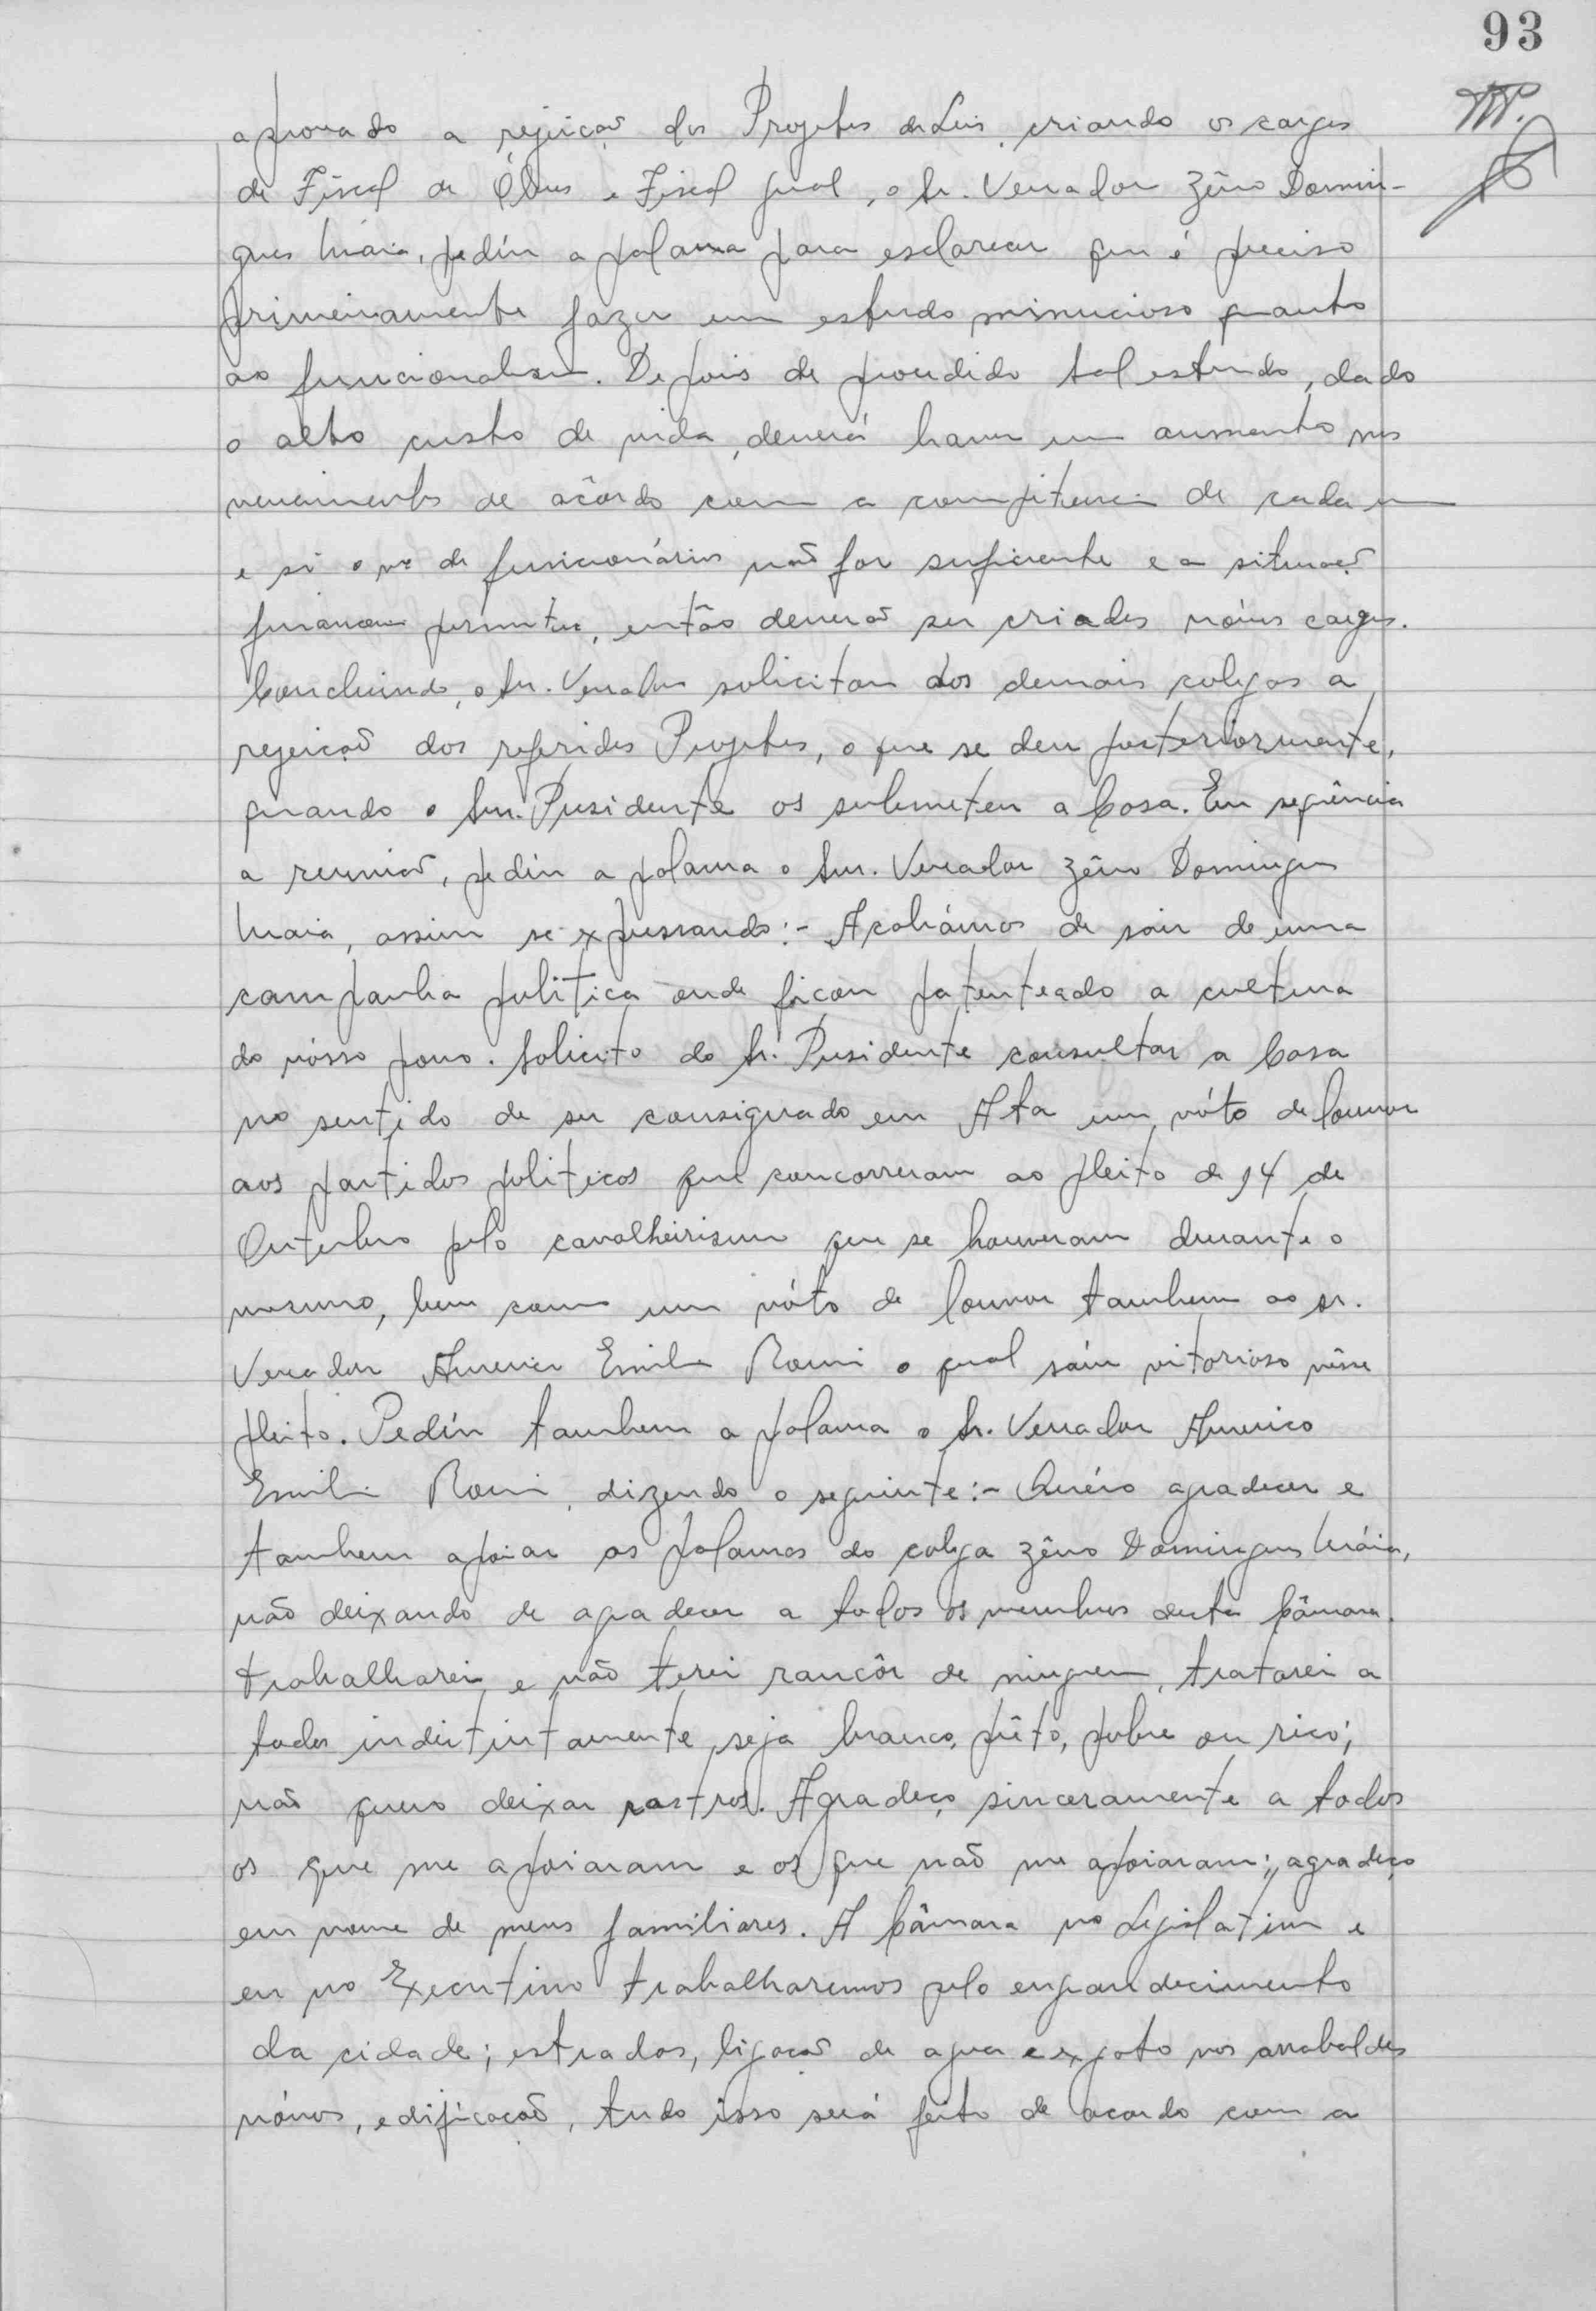 93
aprovado a rejeição dos Projetos de Leis, criando os cargos
de Fiscal de Óbras e Fiscal geral, o Sr. Vereador Zêno Domin-
gues Maia, pediu a palavra para esclarecer que é preciso
primeiramente fazer um estudo minucioso quanto
ao funcionalismo. Depois de procedido tal estudo, dado
o alto custo de vida, deverá haver um aumento nos
vencimentos de acôrdo com a competencia de cada um
e si o nº de funcionários não for suficiente e a situação
financeira permitir, então deverão ser criados nóvos cargos.
Concluindo, o Snr. Vereador solicitou dos demais colegas a
rejeição dos referidos Projetos, o que se deu posteriormente,
quando o Snr. Presidente os submeteu a Casa. Em sequência
a reunião, pediu a palavra o Snr. Vereador Zêno Domingues
Maia, assim se expressando:- Acabámos de sair de uma
campanha politica onde ficou patenteado a cultura
do nósso povo. Solicito do Sr. Presidente consultar a Casa
no sentido de ser consignado em Ata um vóto de louvor
aos partidos politicos que concorreram ao pleito de 14 de
Outubro pelo cavalheirismo que se houveram durante o
mesmo, bem como um vóto de louvor tambem ao sr.
Vereador Americo Emilio Romi o qual saíu vitorioso nêsse
pleito. Pediu tambem a palavra o Sr. Vereador Americo
Emilio Romi, dizendo o seguinte:- Quéro agradecer e
tambem apoiar as palavras do colega Zêno Domingues Máia,
não deixando de agradecer a todos os membros desta Câmara.
Trabalharei e não terei rancôr de ninguem, tratarei a
todos indistintamente, seja branco, prêto, pobre ou rico;
não quero deixar rastros. Agradeço sinceramente a todos
os que me apoiaram e os que não me apoiaram; agradeço
em nome de meus familiares. A Câmara no Legislativo e
eu no Executivo trabalharemos pelo engrandecimento
da cidade; estradas, ligação de agua e exgoto nos arrabaldes
nóvos, edificação, tudo isso será feito de acordo com a